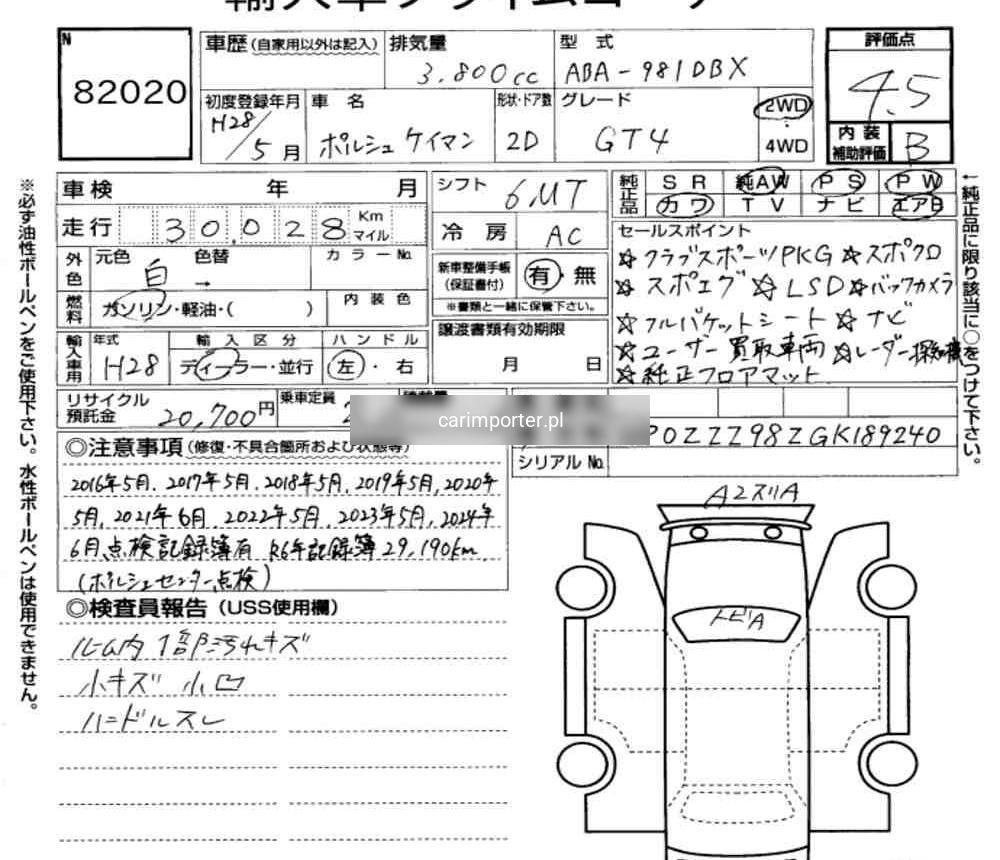 輸入車プライムコーナー
N
82020
車歴(自家用以外は記入)
排気量
3.800cc
型 式
ABA-981DBX
評価点
4.5
初度登録年月
H28/5月
車 名
ポルシェ ケイマン
形状・ドア数
2D
グレード
GT4
2WD
・
4WD
内 装
補助評価
B
車検 年 月
走行 30.028 Km
マイル
外色
元色 色替 カラーNo.
白 →
燃料
ガソリン・軽油・( )
内 装 色
輸入車用
年式
H28
輸 入 区 分
ディーラー・並行
ハ ン ド ル
左・右
シフト
6MT
冷 房
AC
新車整備手帳
(保証書付)
有・無
※書類と一緒に保管下さい。
譲渡書類有効期限
月 日
純正品
SR 純AW PS PW
カワ TV ナビ エアB
セールスポイント
☆クラブスポーツPKG ☆スポクロ
☆スポエグ ☆LSD ☆バックカメラ
☆フルバケットシート ☆ナビ
☆ユーザー買取車両 ☆レーダー探知機
☆純正フロアマット
リサイクル
預託金
20,700円
乗車定員
carimporter.pl
P0ZZZ98ZGK189240
シリアルNo.
◎注意事項(修復・不具合箇所および状態等)
2016年5月.2017年5月.2018年5月.2019年5月,2020年
5月,2021年6月.2022年5月.2023年5月,2024年
6月点検記録簿有 R6年記録簿29,190km
(ポルシェセンター点検)
◎検査員報告(USS使用欄)
ルーム内 1部汚れキズ
小キズ 小凹
ハンドルスレ
A2スリA
トビA
※必ず油性ボールペンをご使用下さい。水性ボールペンは使用できません。
←純正品に限り該当に〇をつけて下さい。